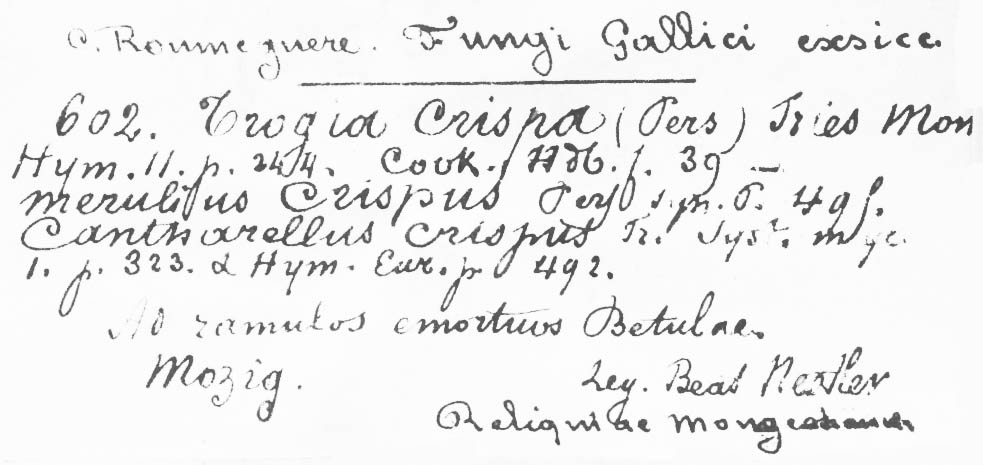 C. Roumeguere. Fungi Gallici exsicc.
602. Trogia Crispa (Pers) Fries Mon
Hym. 11. p. 244. Cook. Hdb. p. 39 —
merulius Crispus Pers syn. P. 495.
Cantharellus crispus Fr. Syst. myc.
1. p. 323. & Hym. Eur. p 492.
Ad ramulos emortuos Betulae.
Mozig.
Leg. Beat Nestler
Reliquiae